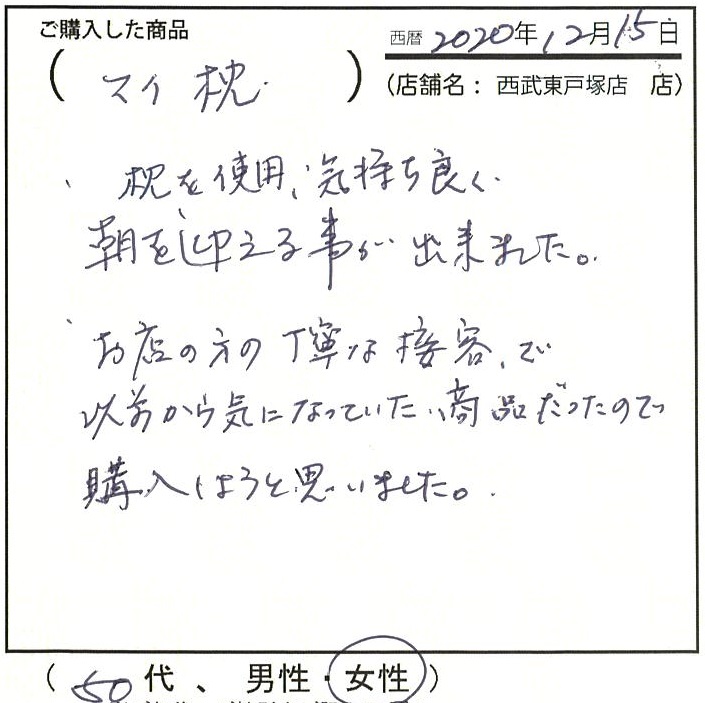 ご購入した商品
西暦 2020年12月15日
(マイ枕)
(店舗名: 西武東戸塚店 店)
、枕を使用、気持ち良く
朝を迎える事が出来ました。
、お店の方の丁寧な接客、で
以前から気になっていた、商品だったので
購入しようと思いました。
(50代、男性・女性)